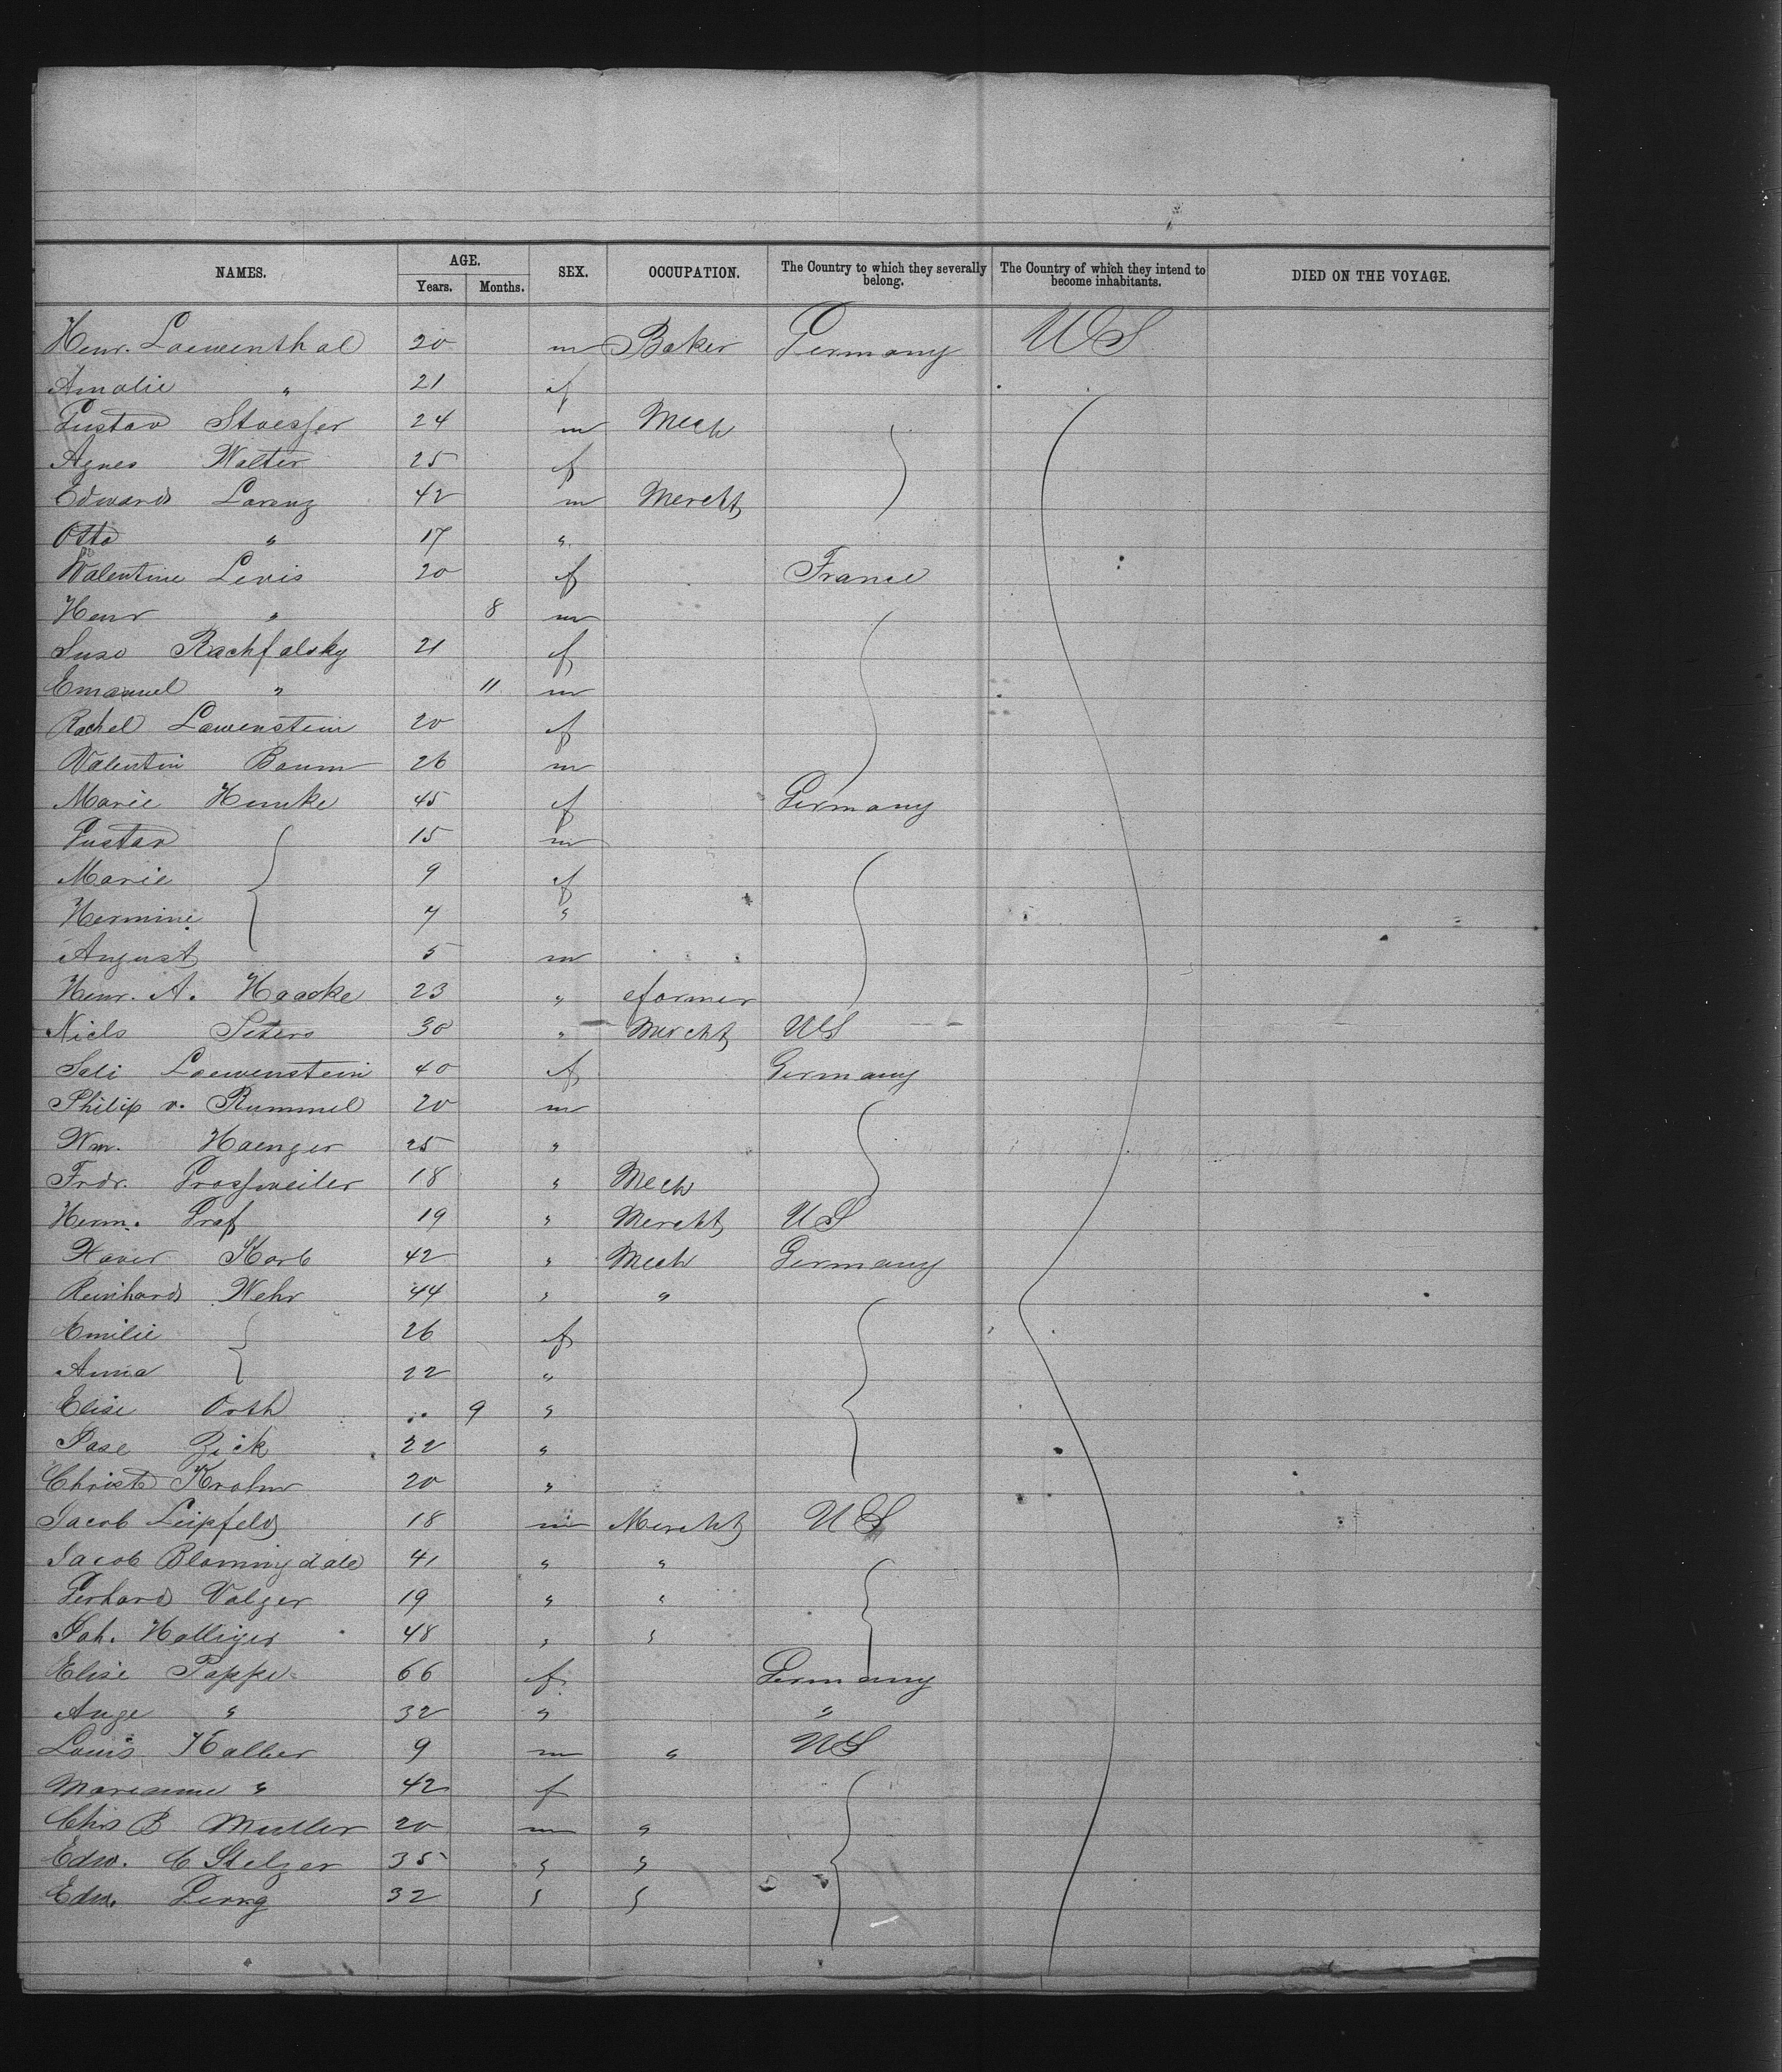 NAMES. AGE. SEX. OCCUPATION. The Country to which they severally belong. The Country of which they intend to become inhabitants. DIED ON THE VOYAGE.
Years. Months.
Henr. Loewenthal 20 m Baker Germany US
Amalie " 21 f
Gustav Stoesser 24 m Mech
Agnes Walter 25 f
Edward Lorenz 42 m Mercht
Otto " 17 "
Valentine Levis 20 f France
Henr " 8 m
Rachfalsky 21 f
Emanuel " 11 m
Rachel Lawenstein 20 f
Valentin Baum 26 m
Marie Humke 45 f Germany
Gustav 15 m
Marie 9 f
Hermine 7 "
August 5 m
Henr. A. Haacke 23 " farmer
Niels Peters 30 " Mercht US
Sali Loewenstein 40 f Germany
Philip v. Rummel 20 m
Wm. Haenger 25 "
Frdr. Grossweiler 18 " Mech
Herm. Graf 19 " Mercht US
Xaver Korb 42 " Mech Germany
Reinhard Wehr 44 " "
Emilie 26 f
Anna 22 "
Elise Orth .. 9 "
Zick 22 "
Christ Krohn 20 "
Jacob Leipfeld 18 m Mercht US
Jacob Blomingdale 41 " "
Gerhard Valger 19 " "
Joh. Holliger 48 " "
Elise Pappe 66 f Germany
Auge " 32 " "
Louis Kalber 9 m " US
Marianne " 42 f
Chrs B Muller 20 m "
Edw. C Stelzer 35 " "
Edw. 32 " "